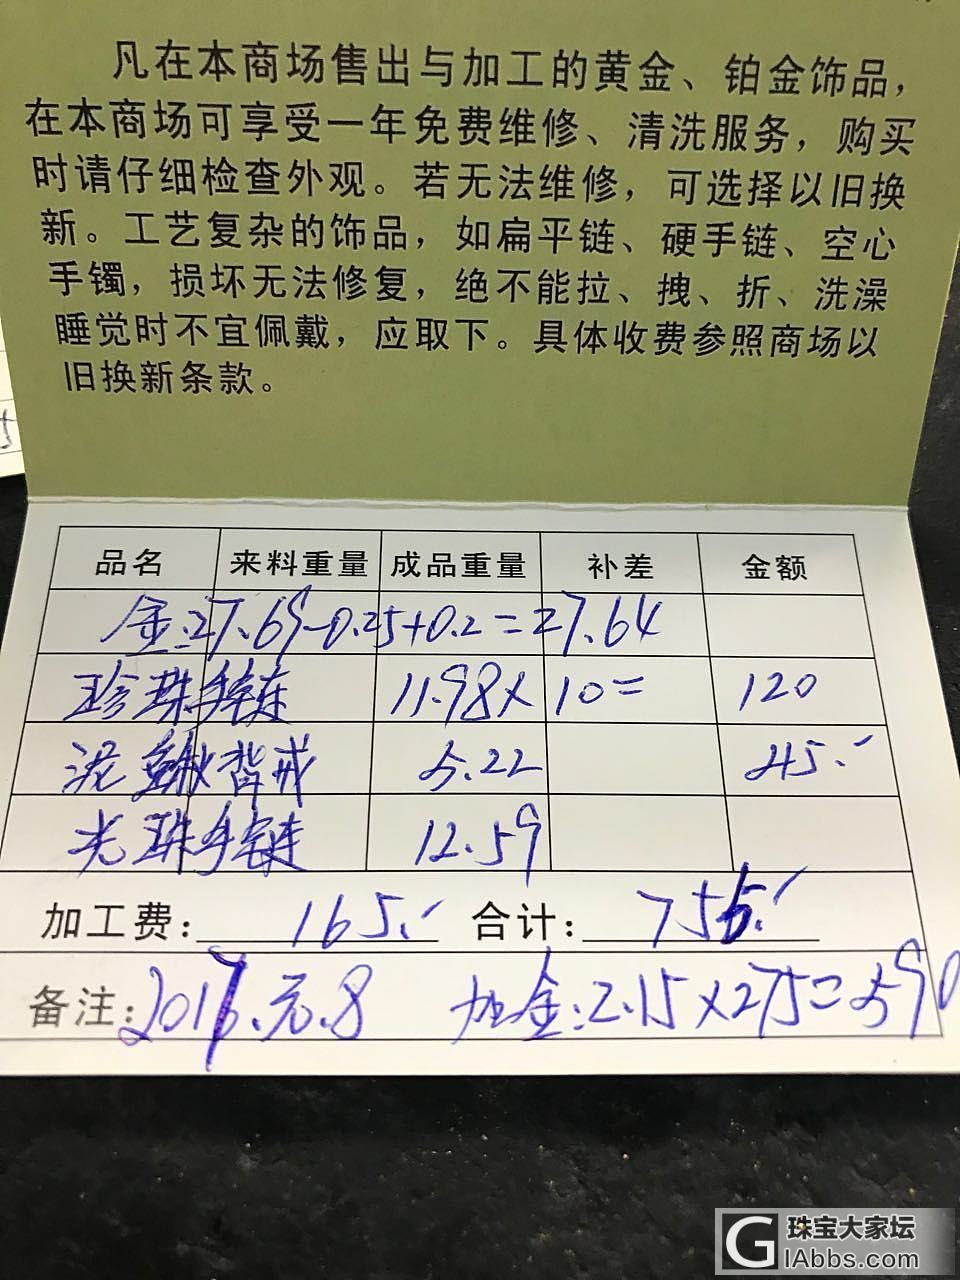 凡在本商场售出与加工的黄金、铂金饰品，
在本商场可享受一年免费维修、清洗服务，购买
时请仔细检查外观。若无法维修，可选择以旧换
新。工艺复杂的饰品，如扁平链、硬手链、空心
手镯，损坏无法修复，绝不能拉、拽、折、洗澡
睡觉时不宜佩戴，应取下。具体收费参照商场以
旧换新条款。
品名 来料重量 成品重量 补差 金额
金:27.69-0.25+0.2=27.64
珍珠手链 11.98× 10= 120
泥鳅背戒 5.22 45.
光珠手链 12.59
加工费: 165. 合计: 755.
备注: 2017.元.8 加金:2.15×275=590
珠宝大家坛
GIAbbs.com